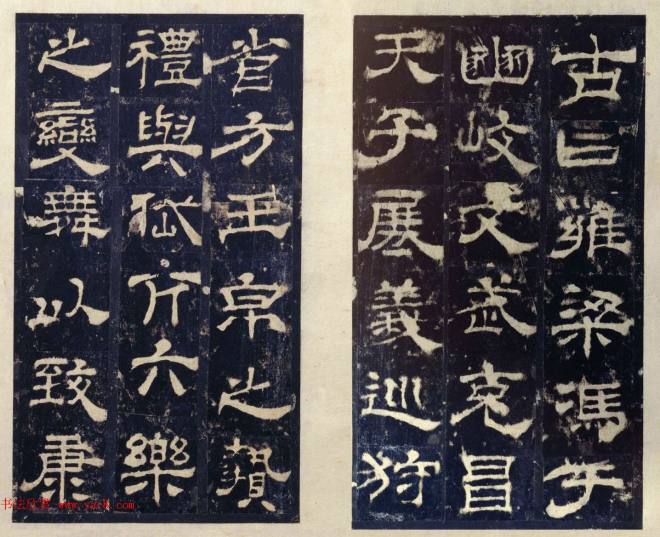 古曰雍梁馮于
豳岐文武克昌
天子展義巡狩
省方玉帛之贄
禮與岱亢六樂
之變舞以致康
书法欣赏 www.yac8.com